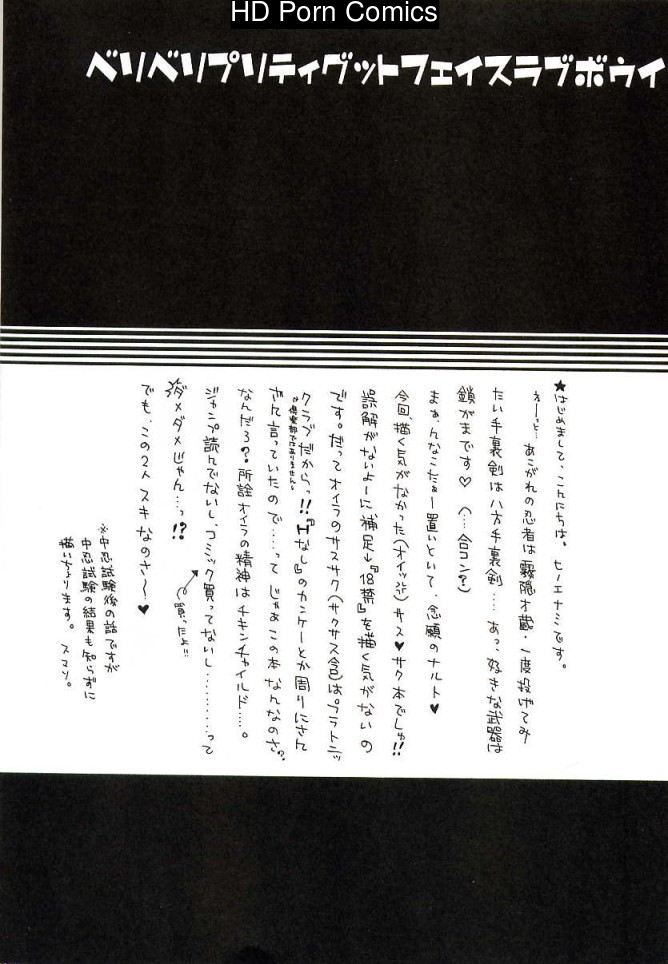 HD Porn Comics
ベリベリプリティグットフェイスラブボウイ
★はじめまして、こんにちは。ヒノエナミです。
えーっと…あこがれの忍者は霧隠才蔵・一度投げてみ
たい手裏剣は八方手裏剣…あっ、好きな武器は
鎖がまです♡(…合コン?)
まぁ、んなこたぁー置いといて、念願のナルト♥
今回、描く気がなかった(オイッ)サス♥サク本でしゅ!!
誤解がないよーに補足→『18禁』を描く気がないの
です。だってオイラのサスサク(サクサス含)は。プラトニッ
クラブだからっ!!『Hなし』のカンケーとか周りにさん
※倶楽部ではありません。
ざん言っていたので……って じゃあこの本なんなのさ?
なんだろ?所詮オイラの精神はチキンチャイルド…。
ジャンプ読んでないし、コミック買ってないし…………って
ダメダメじゃん…っ!?
買ったよ!!
でも、この2人スキなのさ〜♥
※中忍試験後の話ですが
中忍試験の結果も知らずに
描いちょります。スマソ。